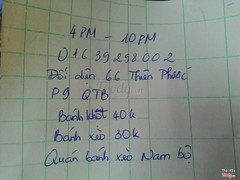 4PM - 10PM
01639298002
Đối diện 66 Thiên Phước
P9 QTB
Bánh khọt 40k
Bánh xèo 30k
Quán bánh xèo Nam bộ